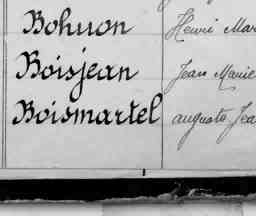 Bohuon Henri Mar
Boisjean Jean Marie
Boismartel auguste Jea